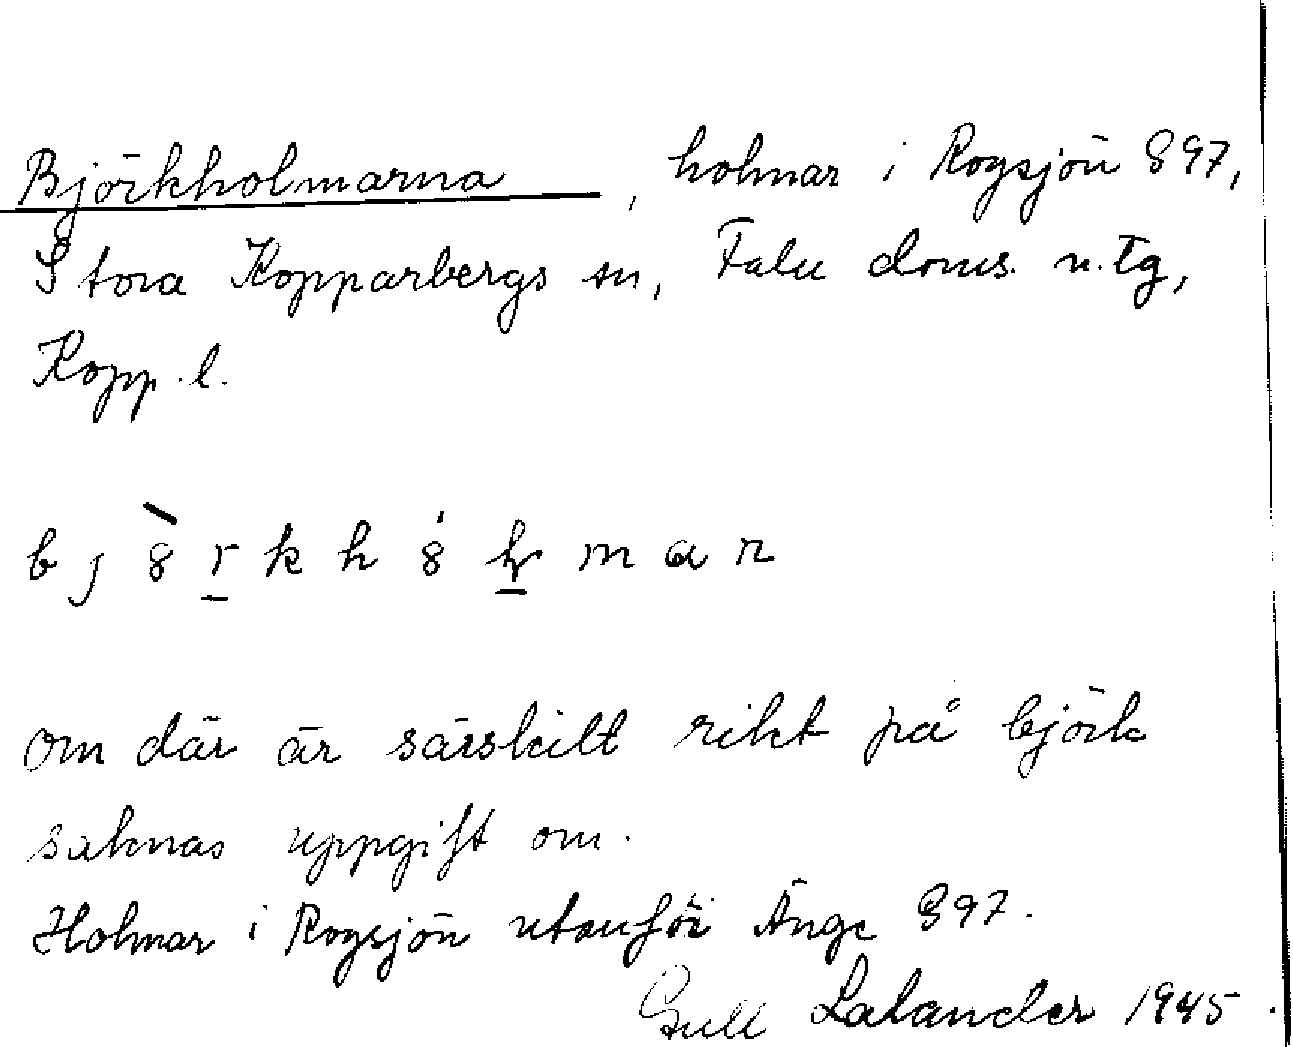 Björkholmarna, holmar i Rogsjön 897,
Stora Kopparbergs sn, Falu doms. n. tg,
Kopp. l.
om där är särskilt rikt på björk
saknas uppgift om.
Holmar i Rogsjön utanför Änge 897.
Gull Lalander 1945.